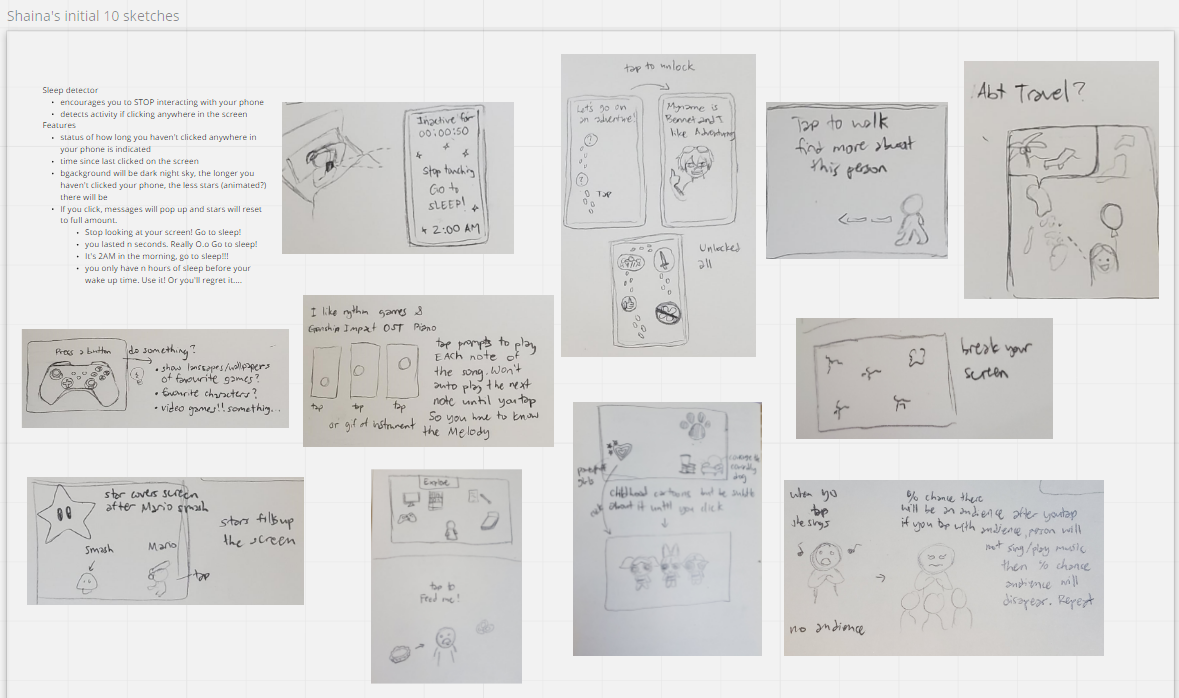 Shaina's initial 10 sketches
Sleep detector
encourages you to STOP interacting with your phone
detects activity if clicking anywhere in the screen
Features
status of how long you haven't clicked anywhere in
your phone is indicated
time since last clicked on the screen
bgackground will be dark night sky, the longer you
haven't clicked your phone, the less stars (animated?)
there will be
If you click, messages will pop up and stars will reset
to full amount.
Stop looking at your screen! Go to sleep!
you lasted n seconds. Really O.o Go to sleep!
It's 2AM in the morning, go to sleep!!!
you only have n hours of sleep before your
wake up time. Use it! Or you'll regret it....
Inactive for
00:00:50
Stop touching
Go to
SLEEP!
2:00 AM
tap to unlock
Let's go on
an adventure!
?
?
Tap
My name is
Bennet and I
like Adventuring
Unlocked
all
Tap to walk
find more about
this person
Abt Travel?
Press a button
do something?
show landscapes/wallpapers
of favourite games?
favourite characters?
video games!! something...
I like rythm games &
Genshin Impact OST Piano
tap
tap
tap
or gif of instrument
tap prompts to play
EACH note of
the song. Won't
auto play the next
note until you tap
So you have to know
the Melody
break your
screen
star covers screen
after Mario smash
smash
Mario
tap
stars fill up
the screen
Explore
tap to
Feed me!
courage the
cowardly
dog
childhood cartoons but be subtle
about it until you click
when you
tap
she sings
no audience
% chance there
will be an audience after you tap
if you tap with audience, person will
not sing/play music
then % chance
audience will
disapear. Repeat